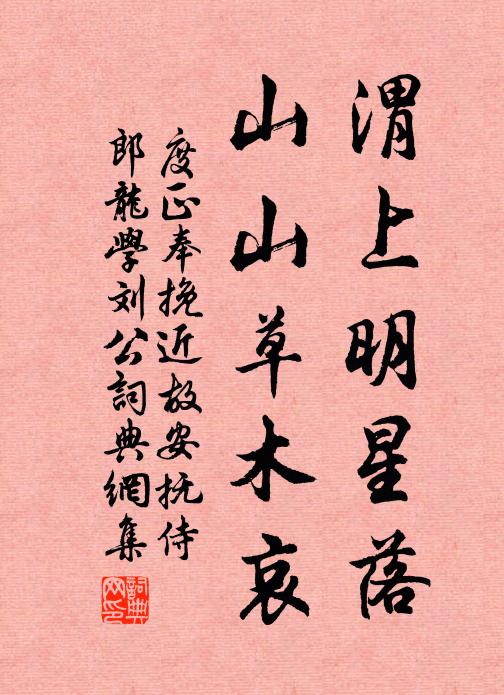 渭上明星落
山山草木哀
度正奉挽近故安抚侍
郎龍學刘公詞典網集
詞典网印